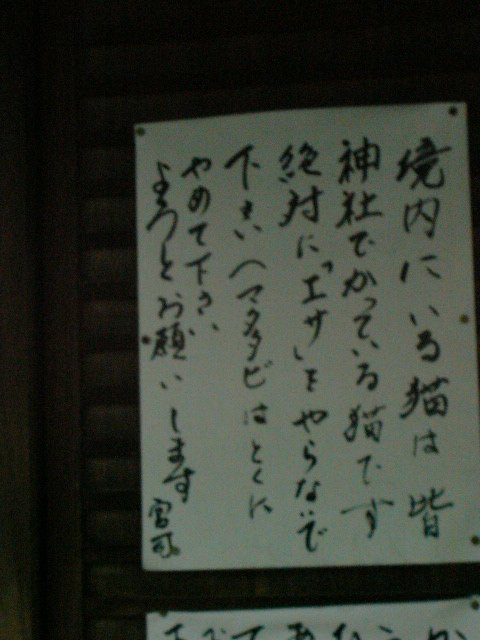 境内にいる猫は皆
神社でかっている猫です
絶対に「エサ」をやらないで
下さい(マタタビはとくに
やめて下さい
よろしとお願いします
宮司